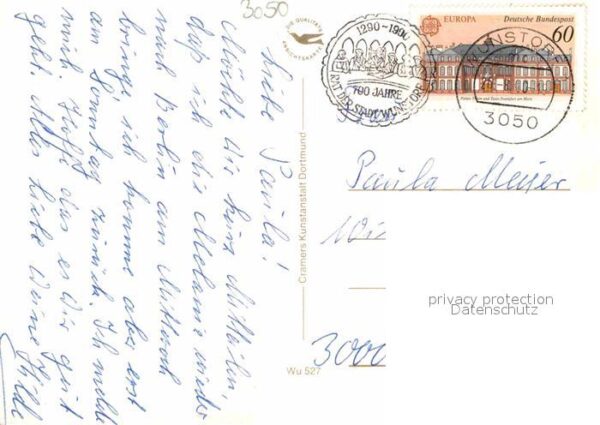 3050
DIE QUALITÄTS
ANSICHTSKARTE
1290-1990
700 JAHRE
RAT DER STADT WUNSTORF
EUROPA
Deutsche Bundespost
60
Palais Thurn und Taxis Frankfurt am Main
WUNSTORF
3050
Liebe Paula!
Möchte Dir kurz Mitteilen,
daß ich die Melanie wieder
nach Berlin am Mittwoch
bringe ich komme aber erst
am Sonntag zurück. Ich melde
mich. Hoffe das es Dir gut
geht. Alles Liebe Deine Hilde
Cramers Kunstanstalt Dortmund
Wu 527
Paula Meyer
3000
privacy protection
Datenschutz